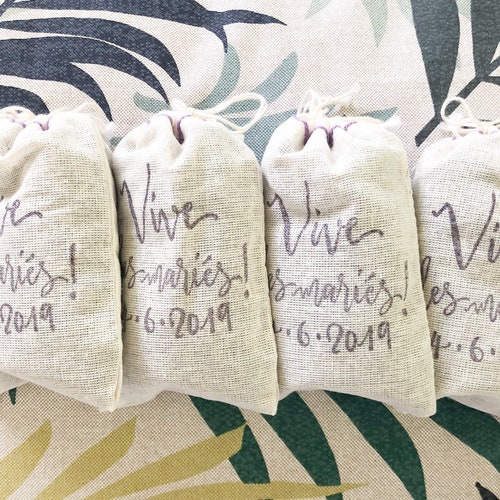 ve
ariés!
2019
Vive
es mariés!
.6.2019
Vive
es mariés!
.6.2019
Viv
les
m
4.6.20